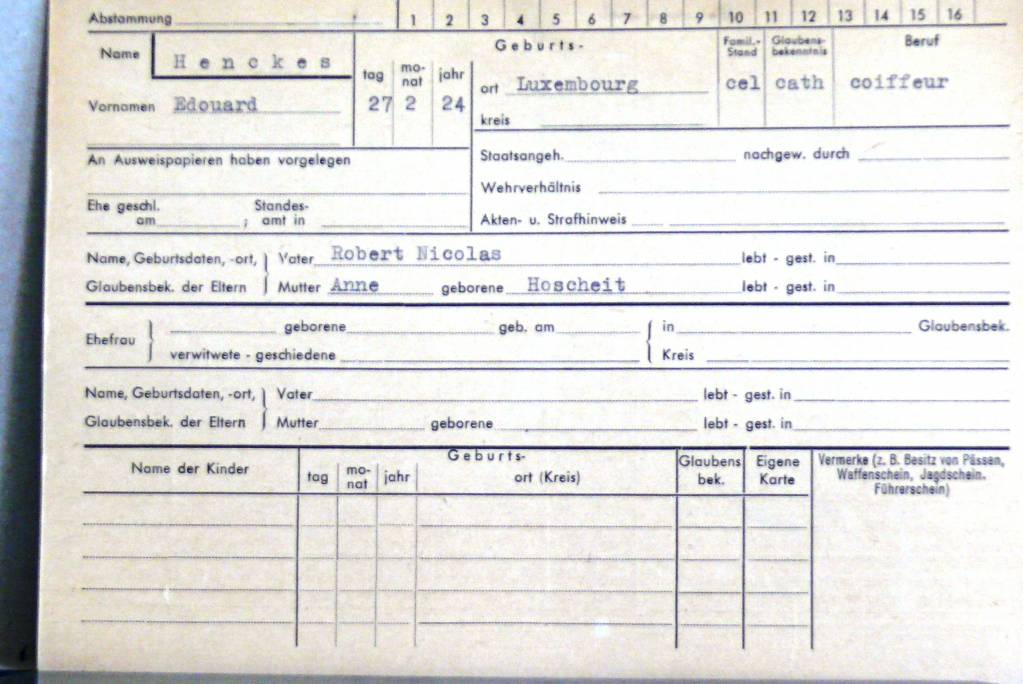 Abstammung 1 2 3 4 5 6 7 8 9 10 11 12 13 14 15 16
Name Henckes
Geburts-
Famil.- Stand
Glaubens- bekenntnis
Beruf
tag mo- nat jahr
ort Luxembourg cel cath coiffeur
Vornamen Edouard 27 2 24
kreis
An Ausweispapieren haben vorgelegen
Staatsangeh. nachgew. durch
Wehrverhältnis
Ehe geschl. am ; Standes- amt in
Akten- u. Strafhinweis
Name, Geburtsdaten, -ort, Vater Robert Nicolas lebt - gest. in
Glaubensbek. der Eltern Mutter Anne geborene Hoscheit lebt - gest. in
Ehefrau geborene geb. am in Glaubensbek.
verwitwete - geschiedene Kreis
Name, Geburtsdaten, -ort, Vater lebt - gest. in
Glaubensbek. der Eltern Mutter geborene lebt - gest. in
Name der Kinder
Geburts-
tag mo- nat jahr ort (Kreis)
Glaubens bek.
Eigene Karte
Vermerke (z. B. Besitz von Pässen,
Waffenschein, Jagdschein.
Führerschein)